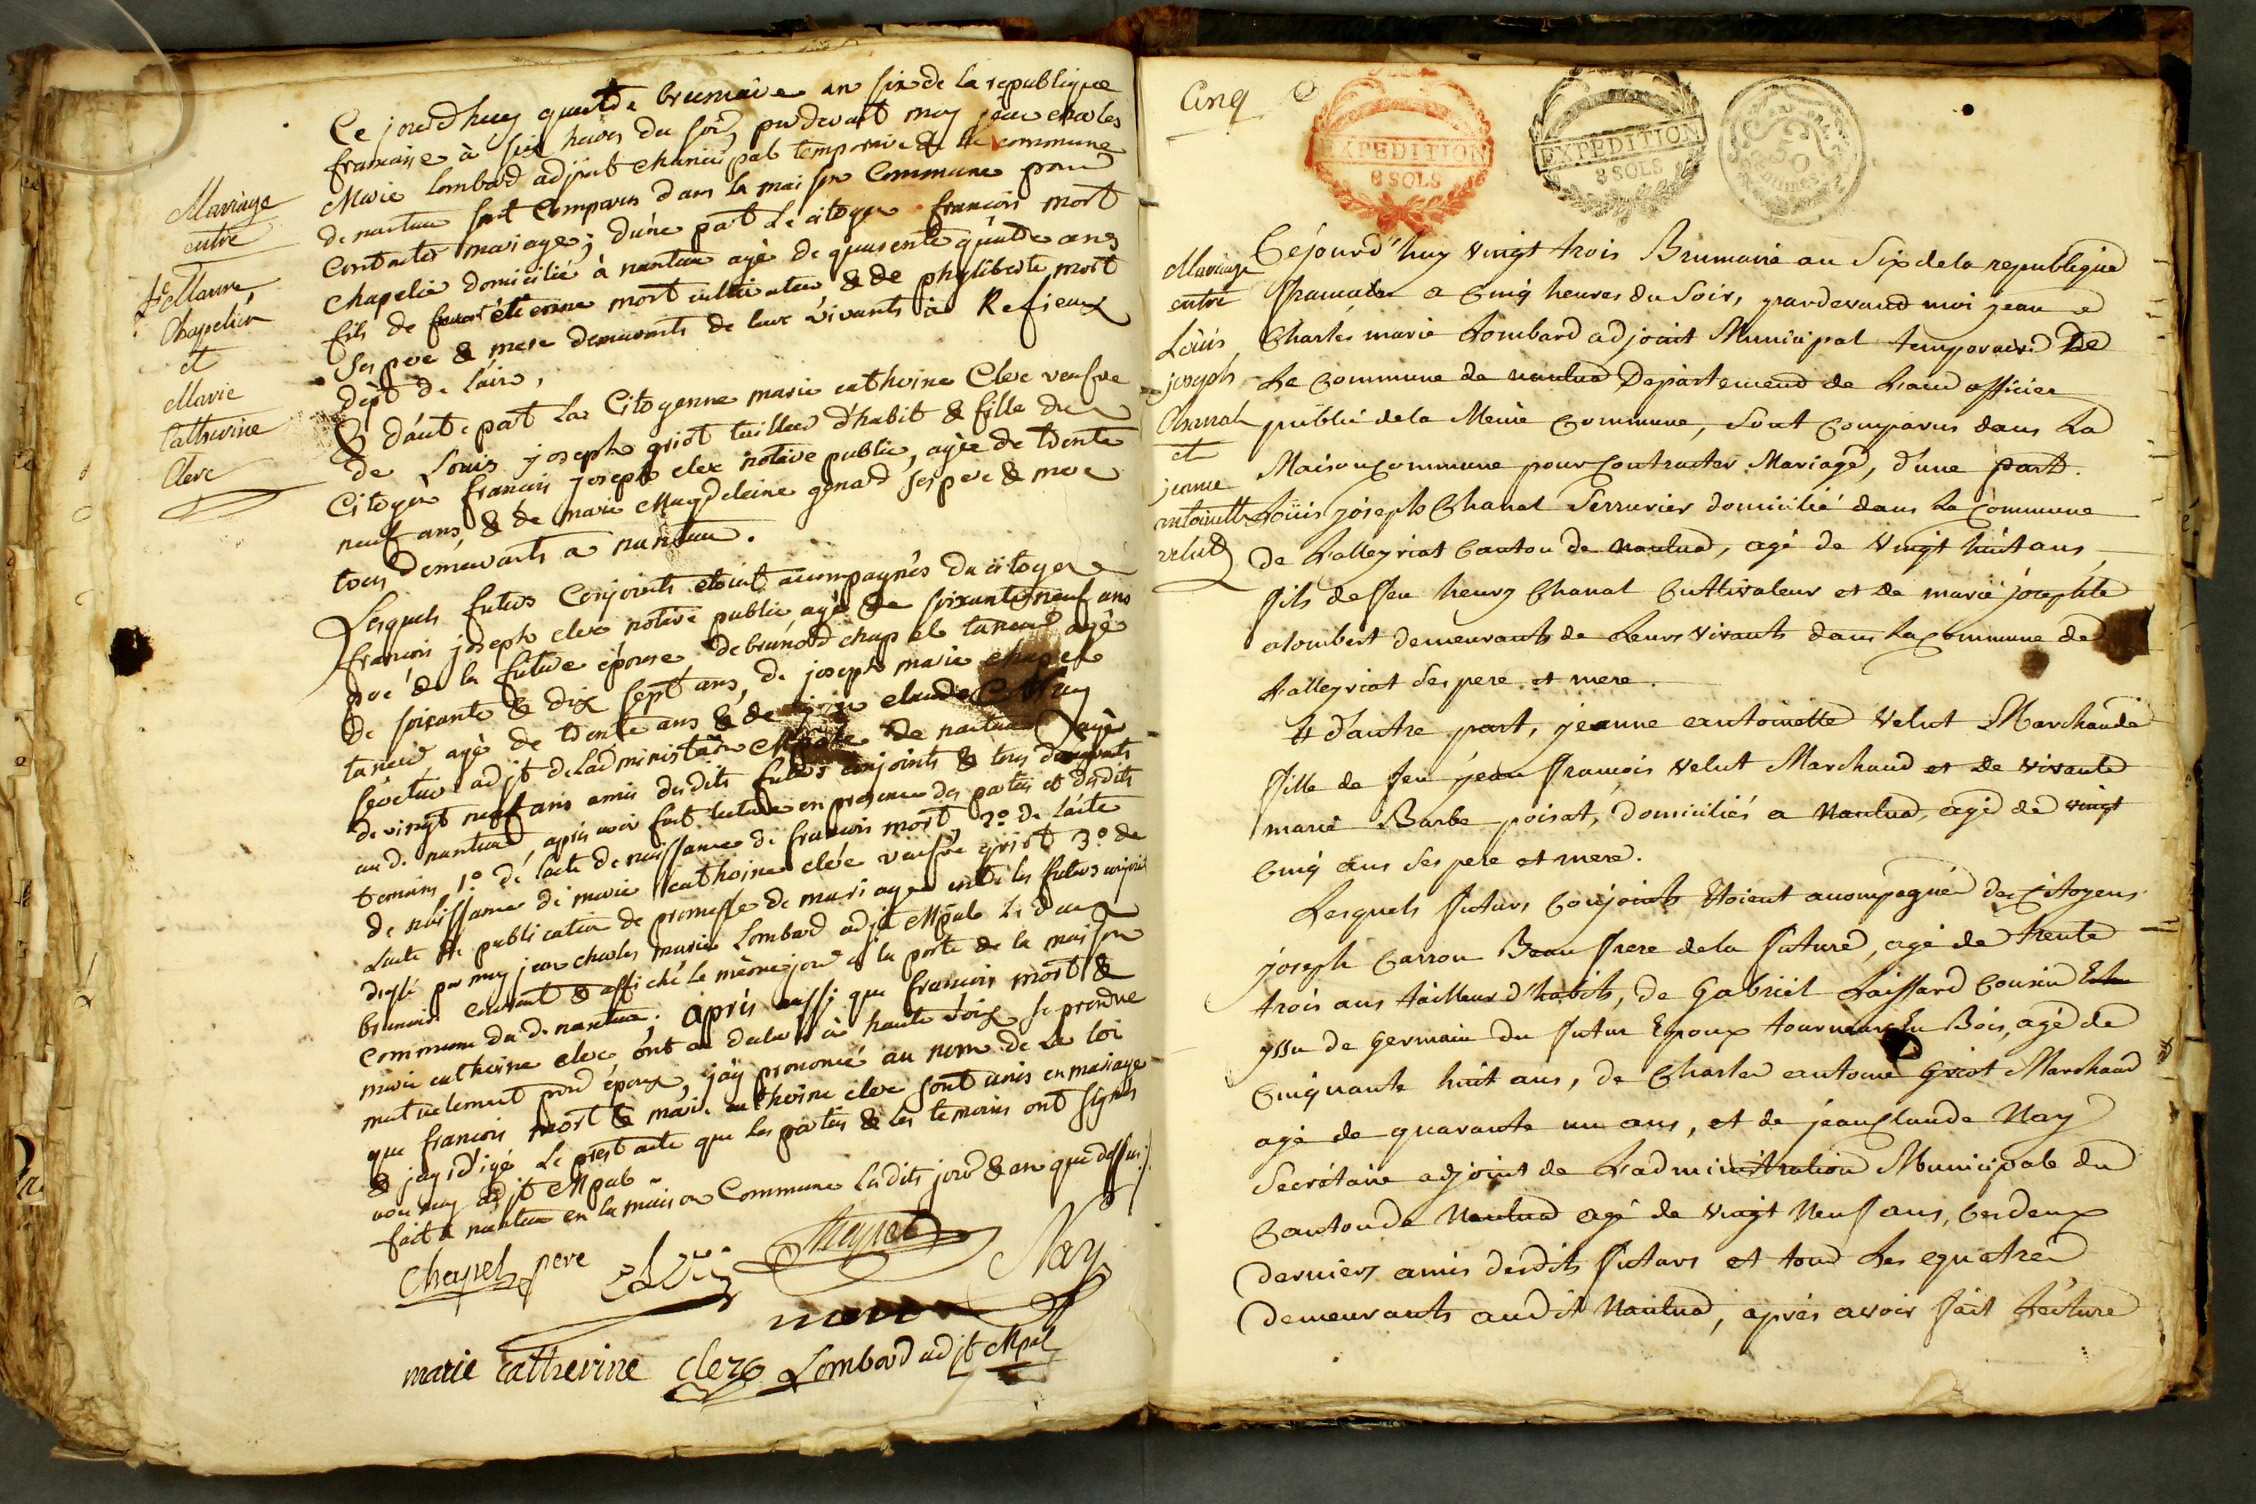 Mariage
entre
Chapelier
et
Marie
Catherine
Clerc
Ce jourdhuy quatre brumaire an six de la republique
francaise à six heures du soir pardevant moy jean charles
Marie Lombard adjoint municipal temporaire de la commune
de nantua sont comparus dans la maison Commune pour
Contracter mariage; d'une part Le citoyen francois mort
chapelier domicilié à nantua agé de quarente quatre ans
fils de étienne mort cultivateur & de philiberte mort
ses pere & mere demeurants de leurs vivants à
dépt de l'ain,
& d'autre part La Citoyenne marie catherine Clerc veufve
de Louis joseph griot tailleur d'habit & fille du
Citoyen francois joseph clerc notaire public, agée de trente
neuf ans, & de marie Magdeleine genard ses pere & mere
tous demeurants a nantua.
Lesquels futurs Conjoints etoient accompagnés du citoyen
francois joseph clerc notaire public agé de soixante neuf ans
pere de la future épouse, de bernard chapel taneur agé
de soixante & dix sept ans, de joseph marie chapel
taneur agé de trente ans & de jean claude Nay
secretaire adjt de l'administration Mpale de nantua agé
de vingt neuf ans amis desdits futurs conjoints & tous demeurants
au d. nantua, après avoir fait lecture en presence des parties et desdits
temoins 1º de l'acte de naissance de francois mort 2º de l'acte
de naissance de marie catherine clerc veufve griot 3º de
l'acte de publication de promesse de mariage entre les futurs conjoints
dressé par moy jean charles marie Lombard adjt Mpale le deux
brumaire courant & affiché le même jour à la porte de la maison
commune du d. nantua. Après aussi que francois mort &
marie catherine clerc ont declaré à haute voix se prendre
mutuelement pour époux, j'ay prononcé au nom de la loi
que francois mort & marie catherine clerc sont unis en mariage
& j'ay redigé le prest acte que les parties & les temoins ont signés
avec moy adjt Mpale
fait à nantua en la maison Commune lesdits jour & an que dessus
Chapel pere Clerc Chapel Nay
mort
marie catherine clerc Lombard adjt Mpal
Cinq
EXPEDITION
8 SOLS
EXPEDITION
8 SOLS
50
Centimes
Mariage
entre
Louis
joseph
Chanal
et
jeanne
antoinette
velut
Cejourd'huy vingt trois Brumaire an Six de la republique
francaise a Cinq heures du Soir, pardevand moi jean
Charles marie Lombard adjoint Municipal temporaire De
La Commune de nantua Departement de Lain officier
public de la Meme Commune, Sont Comparus dans La
Maison Commune pour Contracter Mariage, d'une part.
Loüis joseph Chanal Serrurier domicilié dans La Commune
de Lalleyriat Canton de nantua, agé de vingt huit ans
fils de feu henry Chanal Cultivateur et de marie josephte
alombert demeurants de Leurs vivants dans La Commune de
Lalleyriat Ses pere et mere.
Et d'autre part, jeanne antoinette velut Marchande
fille de feu jean francois velut Marchand et de vivante
marie Barbe poisat, domiciliés a Nantua, agé de vingt
Cinq ans Ses pere et mere.
Lesquels futurs Conjoints Etoient acompagné des Citoyens
joseph Carron Beau frere de la future, agé de trente
trois ans tailleur d'habits, de Gabriel Laissard Cousin
yssu de germain du futur Epoux tourneur En Bois, agé de
Cinquante huit ans, de Charles antoine Griot Marchand
agé de quarante un ans, et de jean Claude Nay
Secrétaire adjoint de L'administration Municipale du
Canton de Nantua agé de vingt Neuf ans, Ces deux
derniers amis desdits futurs et tous Les quatre
demeurants audit Nantua, aprés avoir fait Lecture